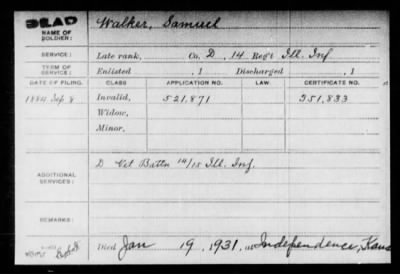 DEAD
NAME OF SOLDIER: Walker, Samuel
SERVICE: Late rank, Co. D, 14 Reg't Ill. Inf
TERM OF SERVICE: Enlisted , 1 Discharged , 1
DATE OF FILING. CLASS APPLICATION NO. LAW. CERTIFICATE NO.
1884 Sep 8 Invalid, 521,871 351,833
Widow,
Minor,
ADDITIONAL SERVICES: D Vet Battn 14/15 Ill. Inf.
REMARKS:
Died Jan 19, 1931, at Independence, Kans